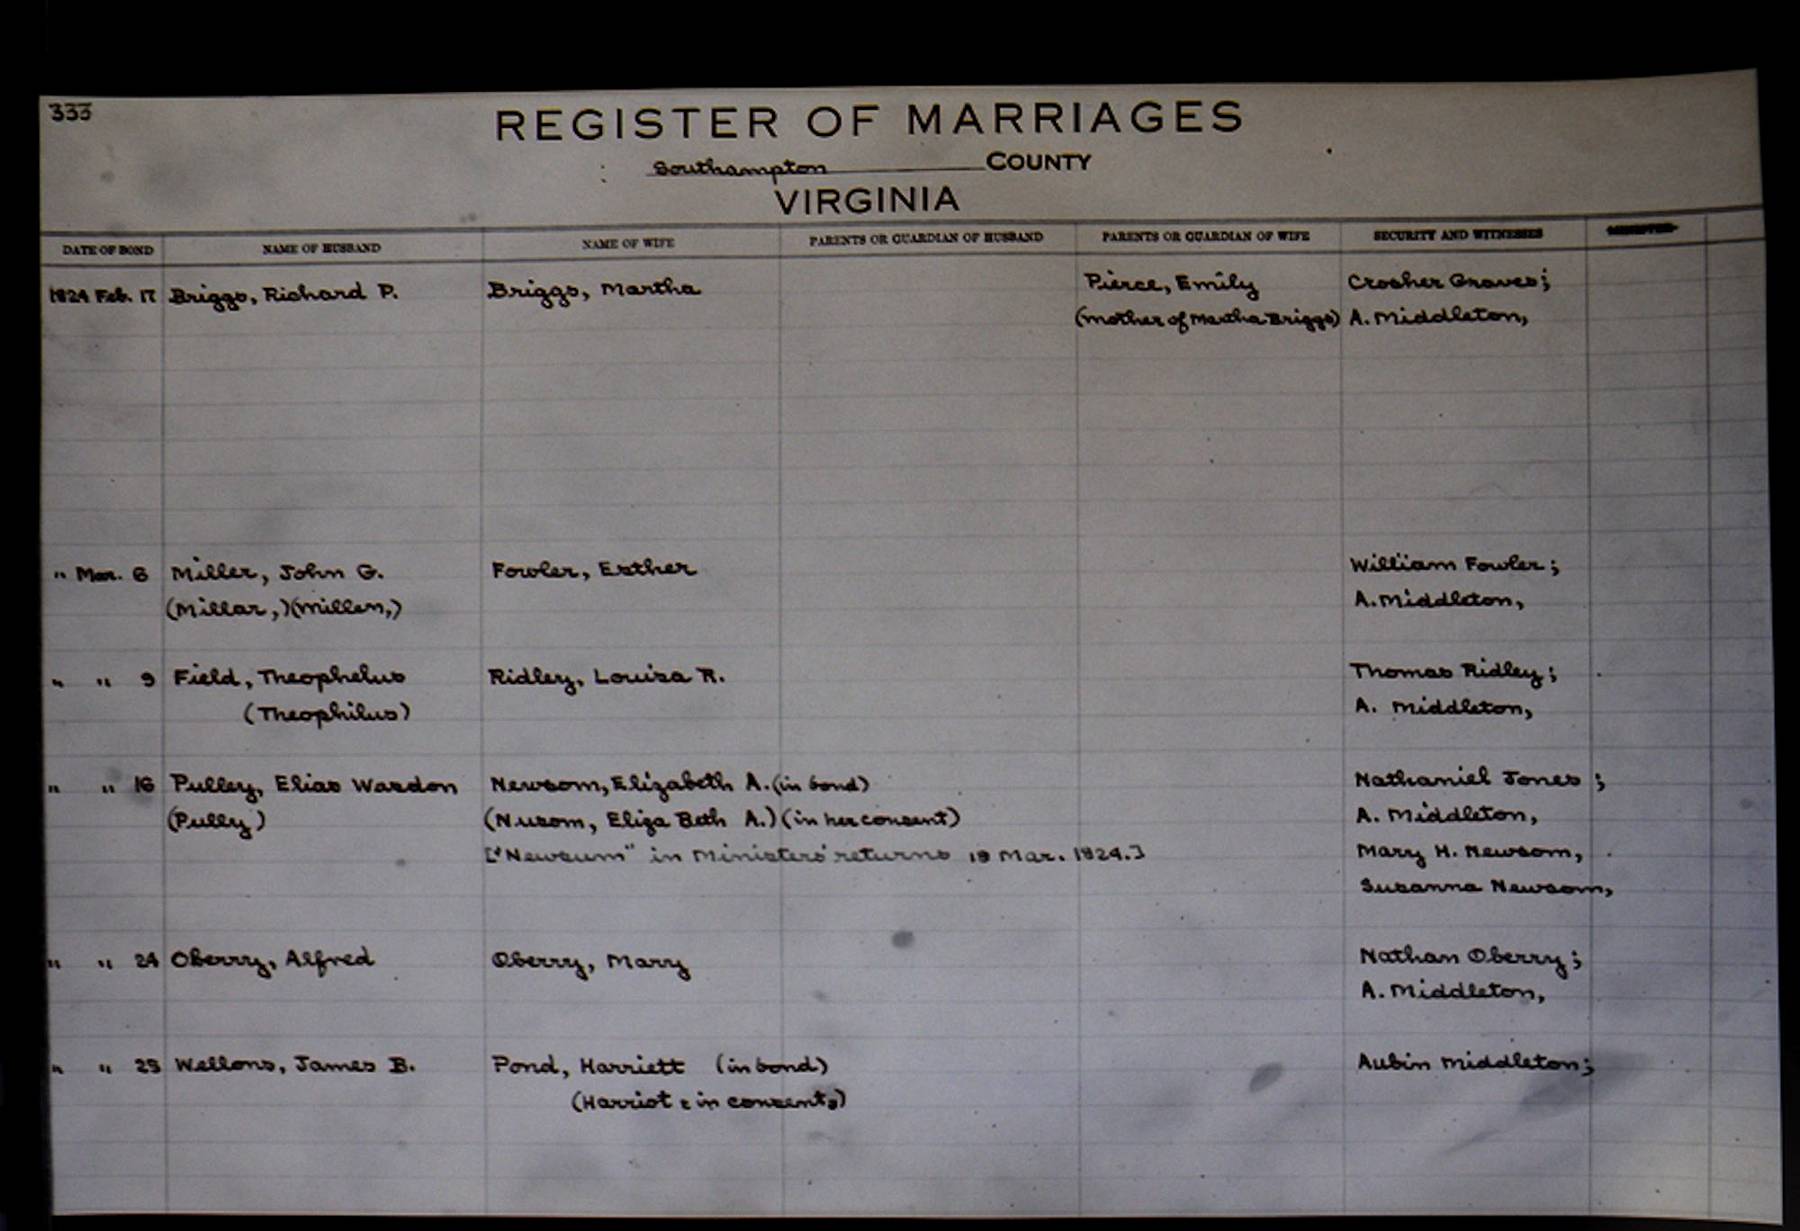 333
REGISTER OF MARRIAGES
Southampton COUNTY
VIRGINIA
DATE OF BOND NAME OF HUSBAND NAME OF WIFE PARENTS OR GUARDIAN OF HUSBAND PARENTS OR GUARDIAN OF WIFE SECURITY AND WITNESSES
1824 Feb. 17 Briggs, Richard P. Briggs, Martha Pierce, Emily Crosher Graves;
(mother of Martha Briggs) A. Middleton,
" Mar. 6 Miller, John G. Fowler, Esther William Fowler;
(Millar,)(Millen,) A. Middleton,
" " 9 Field, Theophelus Ridley, Louisa R. Thomas Ridley;
(Theophilus) A. Middleton,
" " 16 Pulley, Elias Wardon Newsom, Elizabeth A. (in bond) Nathaniel Jones;
(Pully) (Nusom, Eliza Beth A.) (in her consent) A. Middleton,
["Newsum" in Ministers' returns 18 Mar. 1824.] Mary H. Newsom,
Susanna Newsom,
" " 24 Oberry, Alfred Oberry, Mary Nathan Oberry;
A. Middleton,
" " 25 Wellons, James B. Pond, Harriett (in bond) Aubin Middleton;
(Harriot in consent)